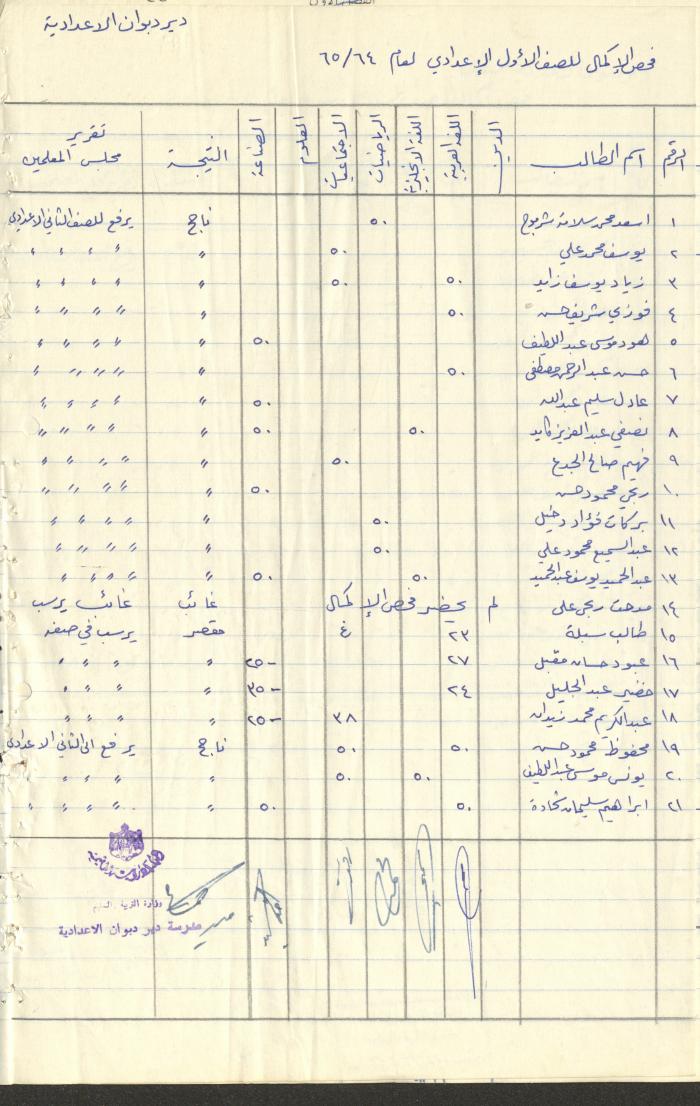 دير دبوان الاعدادية
فحص الإكمال للصف الأول الإعدادي لعام ٦٥/٦٤
الرقم اسم الطالب الدين اللغة العربية اللغة الانجليزية الرياضيات الاجتماعيات العلوم الصناعة النتيجة تقرير مجلس المعلمين
١ اسعد محمد سلامة ٥٠ ناجح يرفع للصف الثاني الاعدادي
٢ يوسف محمد علي ٥٠ 〃 〃 〃 〃 〃
٣ زياد يوسف زايد ٥٠ ٥٠ 〃 〃 〃 〃 〃
٤ فوزي شريف حسن ٥٠ 〃 〃 〃 〃 〃
٥ هود موسى عبد اللطيف ٥٠ 〃 〃 〃 〃 〃
٦ حسن عبد الرحمن مصطفى ٥٠ 〃 〃 〃 〃 〃
٧ عادل سليم عبد الله ٥٠ 〃 〃 〃 〃 〃
٨ نصفي عبد العزيز كايد ٥٠ ٥٠ 〃 〃 〃 〃 〃
٩ فهيم صالح الجدع ٥٠ 〃 〃 〃 〃 〃
١٠ ربحي محمود حسن ٥٠ 〃 〃 〃 〃 〃
١١ بركات فؤاد دخيل ٥٠ 〃 〃 〃 〃 〃
١٢ عبد السميع محمود علي ٥٠ 〃 〃 〃 〃 〃
١٣ عبد الحميد يوسف عبد الحميد ٥٠ ٥٠ 〃 〃 〃 〃 〃
١٤ مدحت ربحي علي لم يحضر فحص الإكمال غائب غائب يرسب
١٥ طالب سبلة ٢٣ غ مقصر يرسب في صفه
١٦ عبود حسان مقبل ٢٧ ٢٥- 〃 〃 〃 〃
١٧ خضير عبد الجليل ٢٤ ٣٥- 〃 〃 〃 〃
١٨ عبد الكريم محمد زيدان ٣٨ ٢٥- 〃 〃 〃 〃
١٩ محفوظ محمود حسن ٥٠ ٥٠ ناجح يرفع الى الثاني الاعدادي
٢٠ يونس موسى عبد اللطيف ٥٠ ٥٠ 〃 〃 〃 〃
٢١ ابراهيم سليمان شحادة ٥٠ ٥٠ 〃 〃 〃 〃 〃
وزارة التربية والتعليم
مدرسة دير دبوان الاعدادية